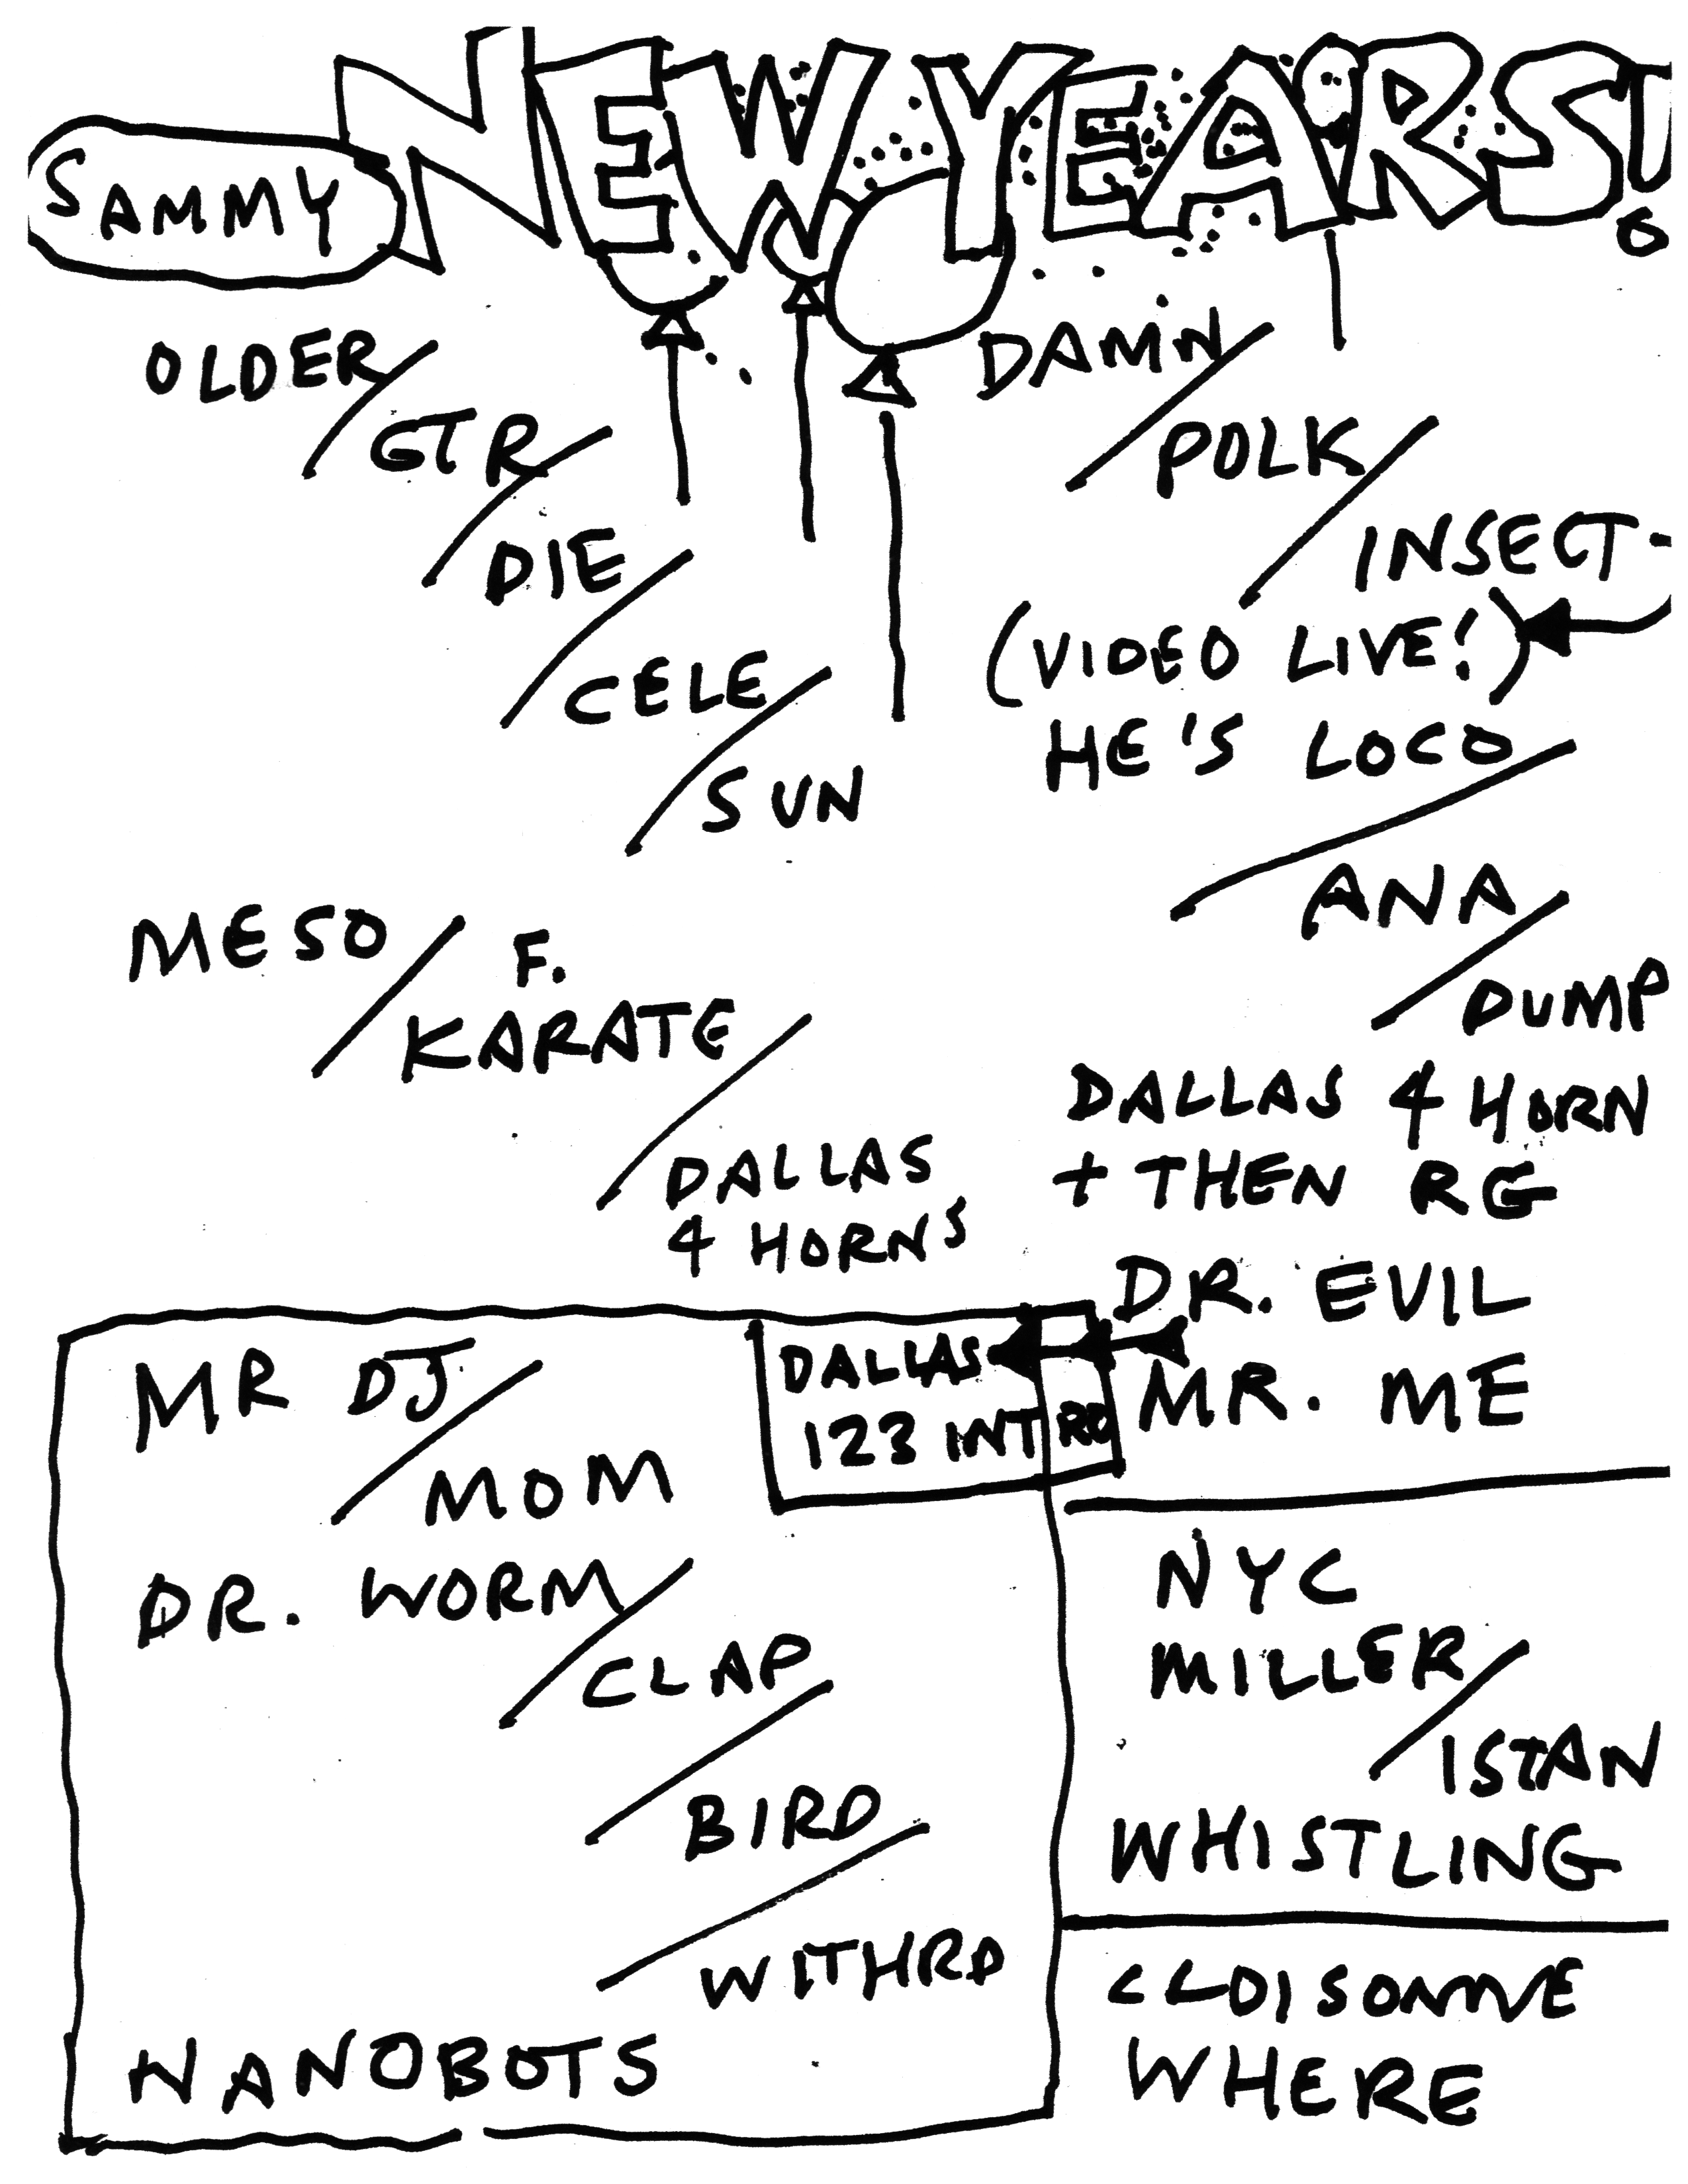 NEW YEARS!
SAMMY
OLDER/
GTR/
DIE/
CELE/
SUN
MESO/
F.
KARATE/
DALLAS
4 HORNS
MR DJ/
MOM
DR. WORM/
CLAP/
BIRD/
WITHRD
NANOBOTS
DALLAS
123 INTRO
DAMN/
POLK/
INSECT-
(VIDEO LIVE!)
HE'S LOCO/
ANA/
DUMP
DALLAS 4 HORN
+ THEN RG
DR. EVIL
MR. ME
NYC
MILLER/
ISTAN
WHISTLING
CLOISONNE
WHERE